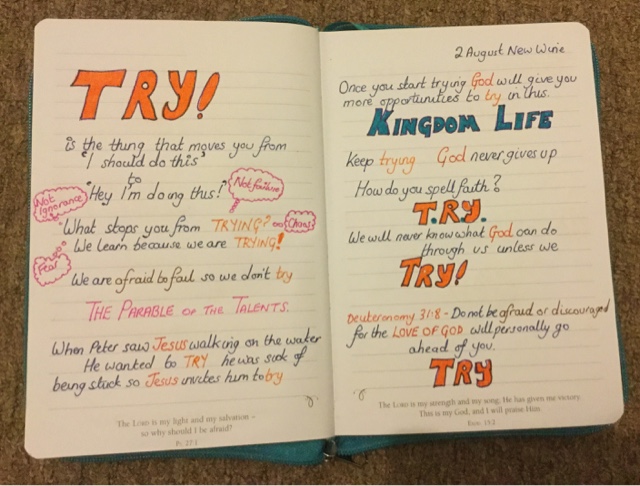 TRY!
is the thing that moves you from
"I should do this"
to
"Hey I'm doing this!"
Not failure
Not Ignorance
"What stops you from TRYING?
Chaos
We learn because we are TRYING!
Fear
We are afraid to fail so we don't try
THE PARABLE OF THE TALENTS.
When Peter saw Jesus walking on the water
He wanted to TRY he was sick of
being stuck so Jesus invites him to try
The LORD is my light and my salvation –
so why should I be afraid?
Ps. 27:1
2 August New Wine
Once you start trying God will give you
more opportunities to try in this.
KINGDOM LIFE
Keep trying God never gives up
How do you spell faith?
T.R.Y.
We will never know what God can do
through us unless we
TRY!
Deuteronomy 31:8 - Do not be afraid or discouraged
for the LOVE OF GOD will personally go
ahead of you.
TRY
The LORD is my strength and my song; He has given me victory.
This is my God, and I will praise Him.
Exod. 15:2